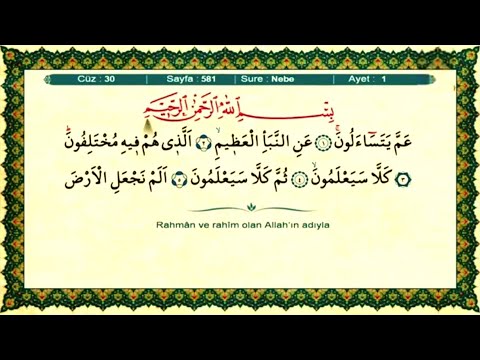 Cüz : 30 Sayfa : 581 Sure : Nebe Ayet : 1
بِسْمِ اللّٰهِ الرَّحْمٰنِ الرَّحٖيمِ
عَمَّ يَتَسَٓاءَلُونَۚ ﴿١﴾ عَنِ النَّبَأِ الْعَظٖيمِۙ ﴿٢﴾ اَلَّذٖي هُمْ فٖيهِ مُخْتَلِفُونَۜ
﴿٣﴾ كَلَّا سَيَعْلَمُونَۙ ﴿٤﴾ ثُمَّ كَلَّا سَيَعْلَمُونَ ﴿٥﴾ اَلَمْ نَجْعَلِ الْاَرْضَ
Rahmân ve rahîm olan Allah'ın adıyla